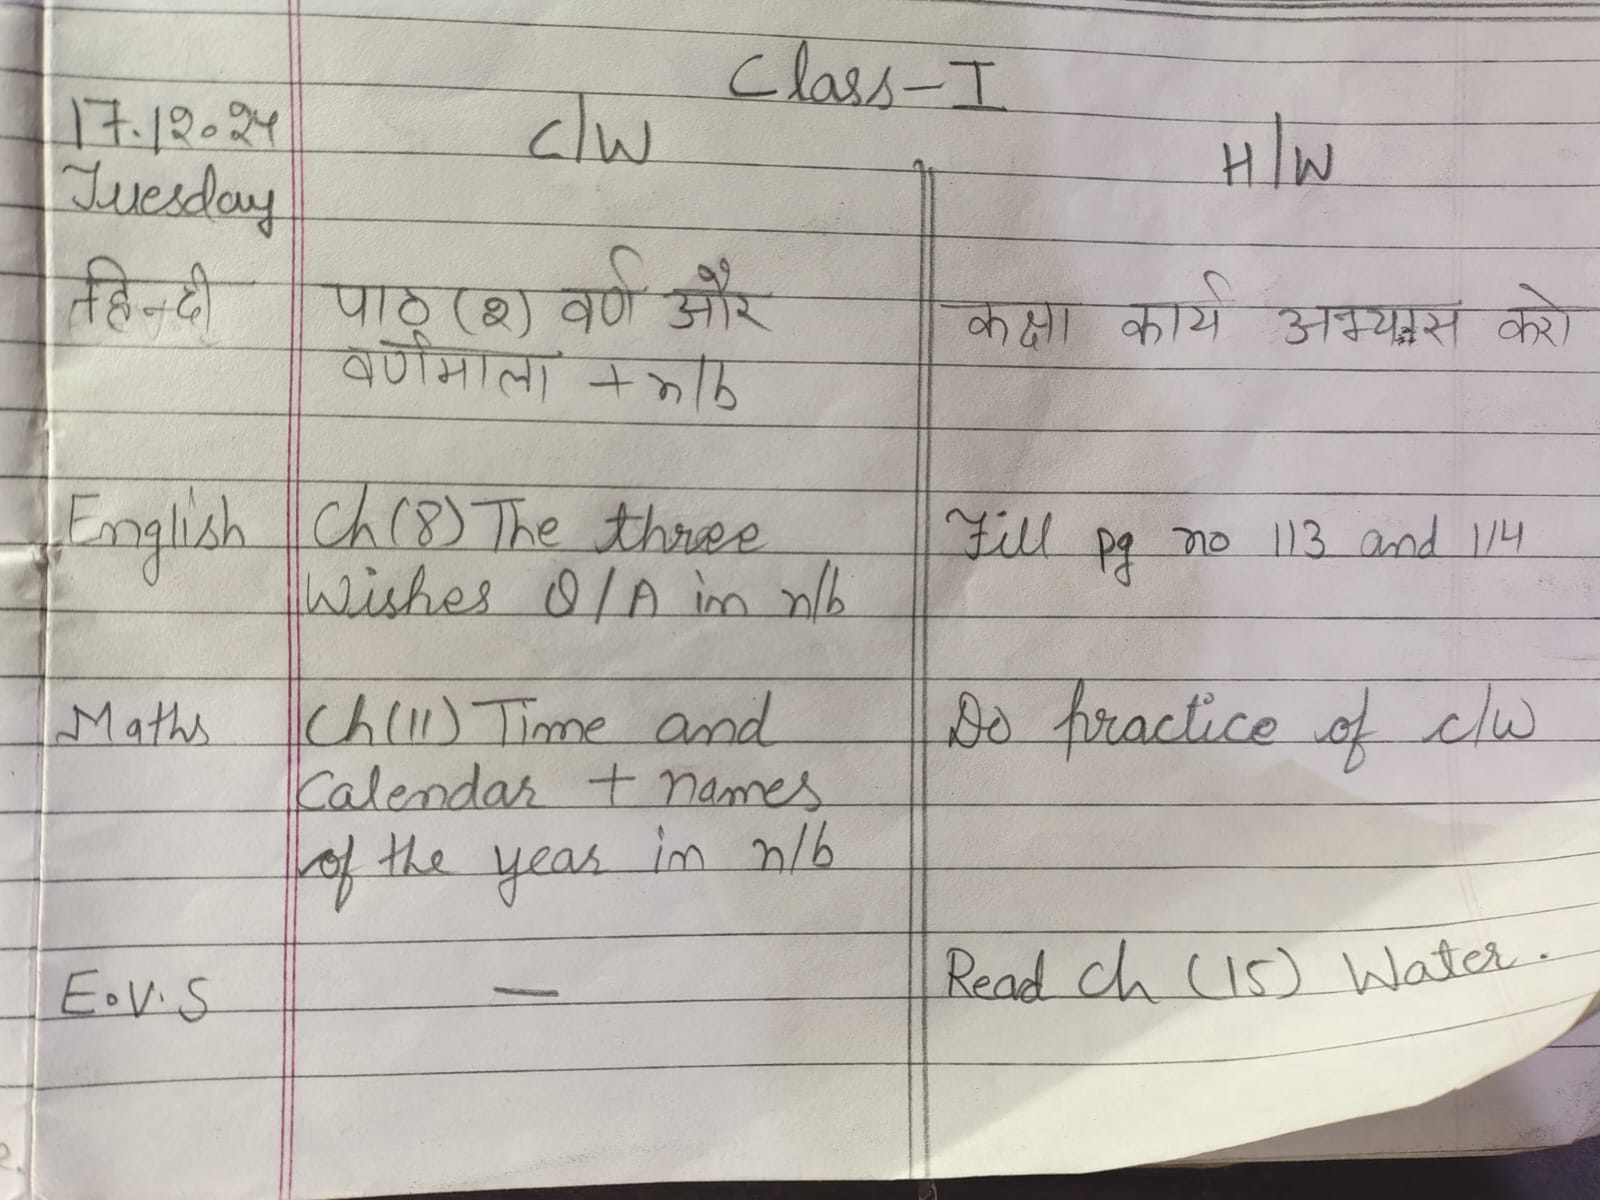 Class-I
17.12.24 C/W H/W
Tuesday
हिन्दी पाठ (२) वर्ण और कक्षा कार्य अभ्यास करो
वर्णमाला + n/b
English Ch(8) The three Fill pg no 113 and 114
Wishes Q/A in n/b
Maths Ch(11) Time and Do practice of c/w
Calendar + names
of the year in n/b
E.V.S — Read Ch (15) Water.